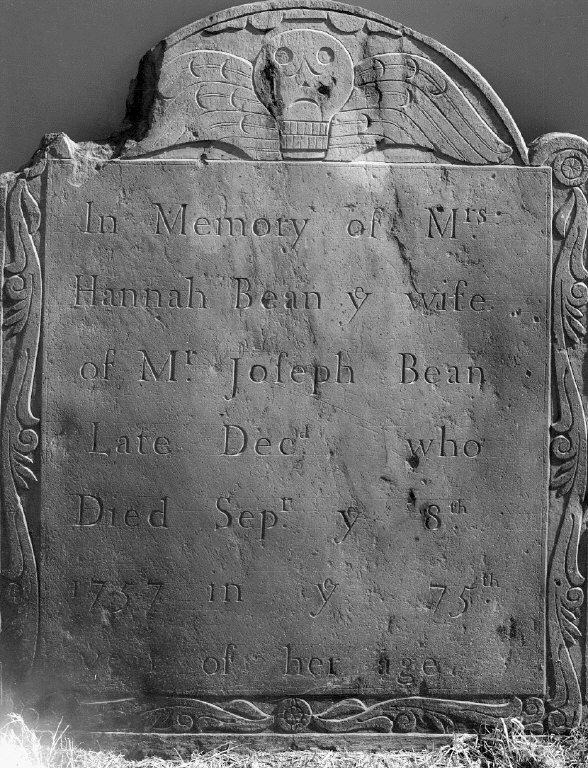 In Memory of Mrs.
Hannah Bean yͤ wife
of Mr. Joſeph Bean
Late Decd who
Died Sepr. yͤ 8th
1757 in yͤ 75th
year of her age